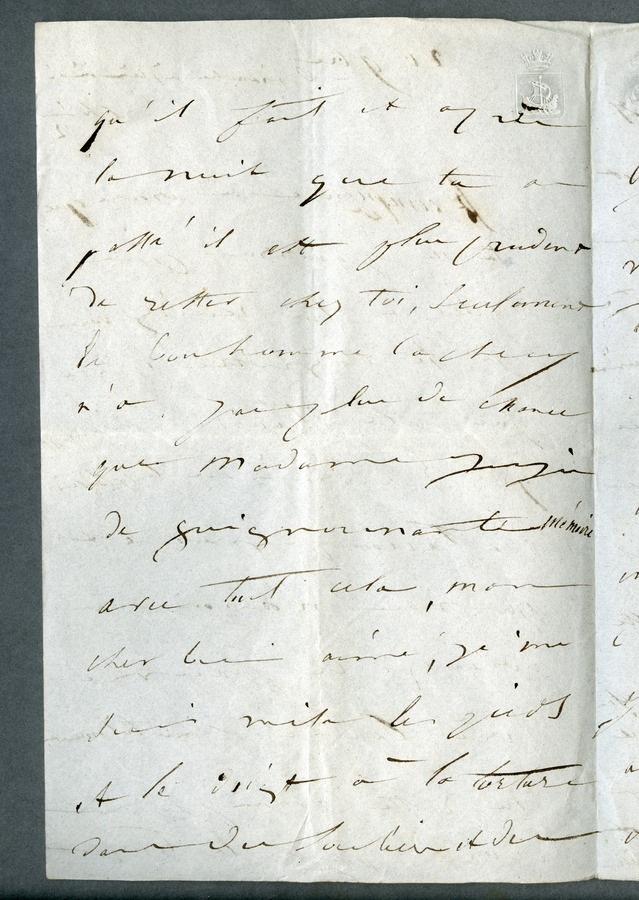 qu'il fait et après
la nuit que tu as
passé il est plus prudent
de rester chez toi, seulement
le bonhomme Cacheux
n'a pas plus de chance
que Madame
de guignonnante mémoire
avec tout cela, mon
cher bien aimé, je me
suis mis les pieds
et le doigt à la torture
dans des souliers et des